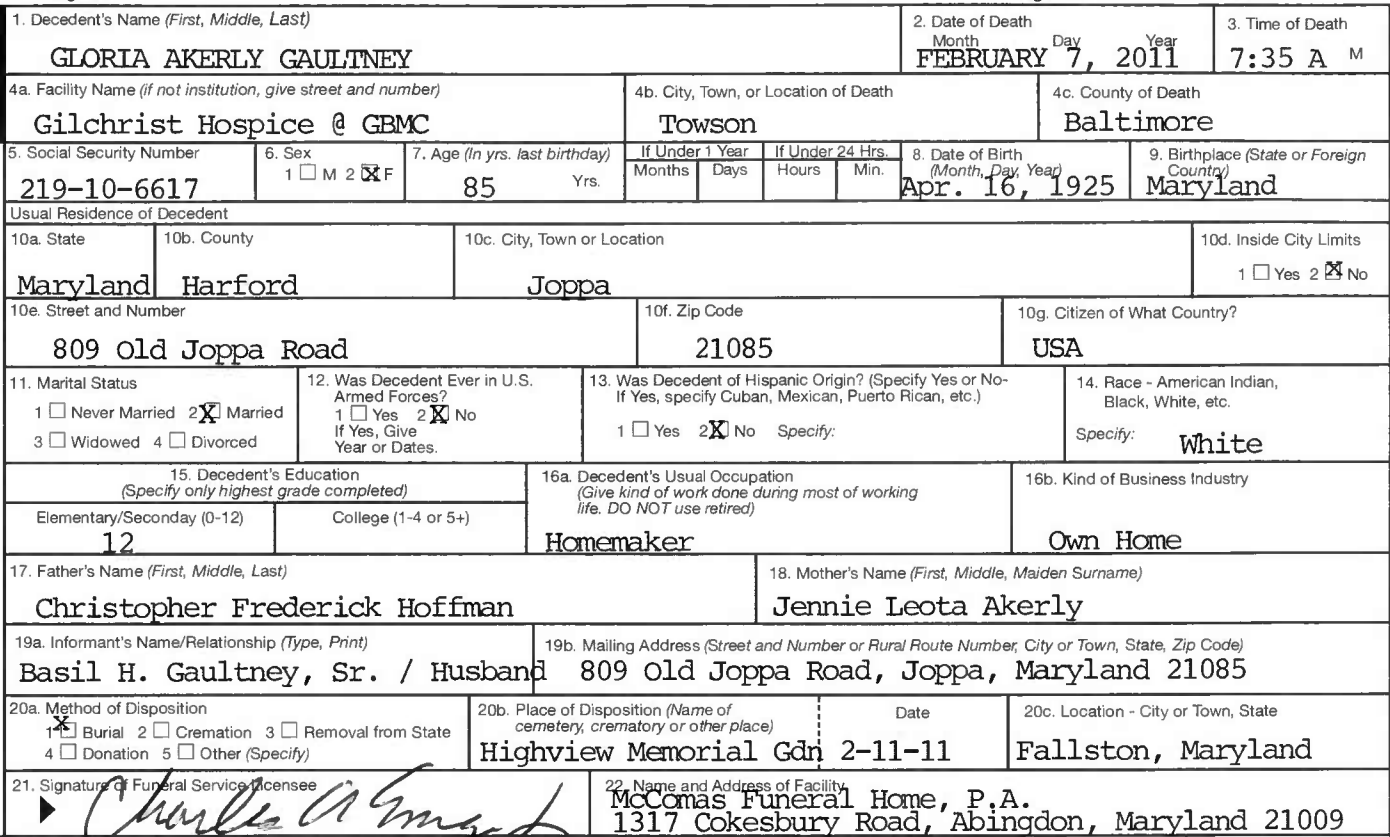 1. Decedent's Name (First, Middle, Last)
GLORIA AKERLY GAULTNEY
2. Date of Death
Month Day Year
FEBRUARY 7, 2011
3. Time of Death
7:35 A M
4a. Facility Name (if not institution, give street and number)
Gilchrist Hospice @ GBMC
4b. City, Town, or Location of Death
Towson
4c. County of Death
Baltimore
5. Social Security Number
219-10-6617
6. Sex
1 ☐ M 2 ☒ F
7. Age (In yrs. last birthday)
85 Yrs.
If Under 1 Year
Months Days
If Under 24 Hrs.
Hours Min.
8. Date of Birth
(Month, Day, Year)
Apr. 16, 1925
9. Birthplace (State or Foreign
Country)
Maryland
Usual Residence of Decedent
10a. State
Maryland
10b. County
Harford
10c. City, Town or Location
Joppa
10d. Inside City Limits
1 ☐ Yes 2 ☒ No
10e. Street and Number
809 Old Joppa Road
10f. Zip Code
21085
10g. Citizen of What Country?
USA
11. Marital Status
1 ☐ Never Married 2 ☒ Married
3 ☐ Widowed 4 ☐ Divorced
12. Was Decedent Ever in U.S.
Armed Forces?
1 ☐ Yes 2 ☒ No
If Yes, Give
Year or Dates.
13. Was Decedent of Hispanic Origin? (Specify Yes or No-
If Yes, specify Cuban, Mexican, Puerto Rican, etc.)
1 ☐ Yes 2 ☒ No Specify:
14. Race - American Indian,
Black, White, etc.
Specify: White
15. Decedent's Education
(Specify only highest grade completed)
Elementary/Seconday (0-12)
12
College (1-4 or 5+)
16a. Decedent's Usual Occupation
(Give kind of work done during most of working
life. DO NOT use retired)
Homemaker
16b. Kind of Business Industry
Own Home
17. Father's Name (First, Middle, Last)
Christopher Frederick Hoffman
18. Mother's Name (First, Middle, Maiden Surname)
Jennie Leota Akerly
19a. Informant's Name/Relationship (Type, Print)
Basil H. Gaultney, Sr. / Husband
19b. Mailing Address (Street and Number or Rural Route Number, City or Town, State, Zip Code)
809 Old Joppa Road, Joppa, Maryland 21085
20a. Method of Disposition
1 ☒ Burial 2 ☐ Cremation 3 ☐ Removal from State
4 ☐ Donation 5 ☐ Other (Specify)
20b. Place of Disposition (Name of
cemetery, crematory or other place)
Highview Memorial Gdn
Date
2-11-11
20c. Location - City or Town, State
Fallston, Maryland
21. Signature of Funeral Service Licensee
Charles A
22. Name and Address of Facility
McComas Funeral Home, P.A.
1317 Cokesbury Road, Abingdon, Maryland 21009